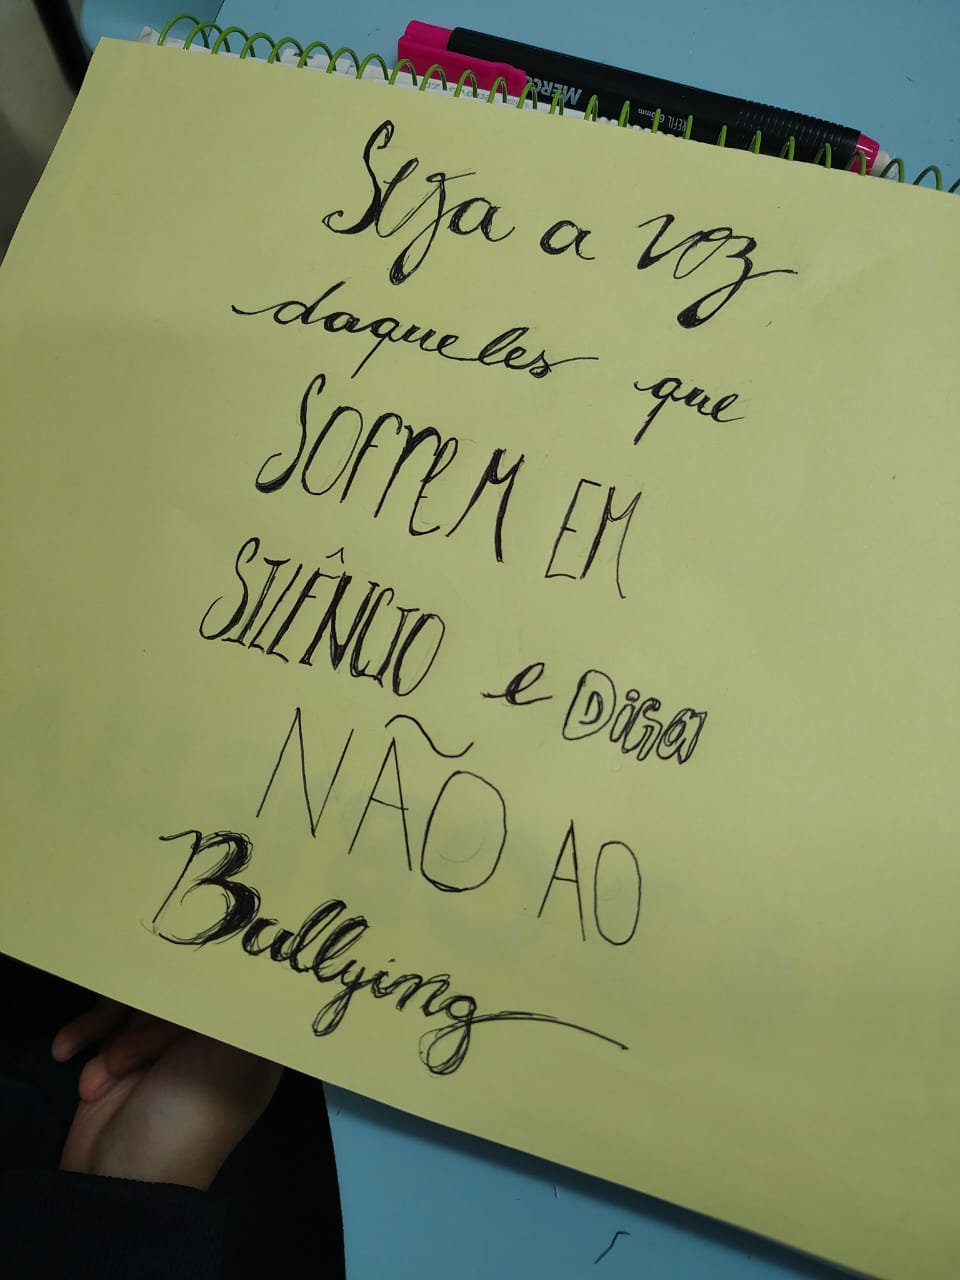 Seja a voz
daqueles que
SOFrreM EM
SILÊNCIO e DIGA
NÃO AO
Bullying
MERCO
REFIL 6